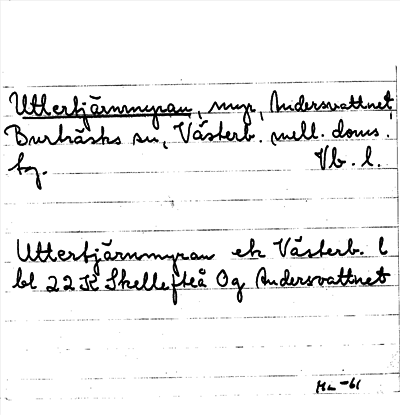 Uttertjärnmyran, myr, Andersvattnet,
Burträsks sn, Västerb. mell. doms.
bg. Vb. l.
Uttertjärnmyran ek Västerb. l
bl 22K Skellefteå Og Andersvattnet
HL -61